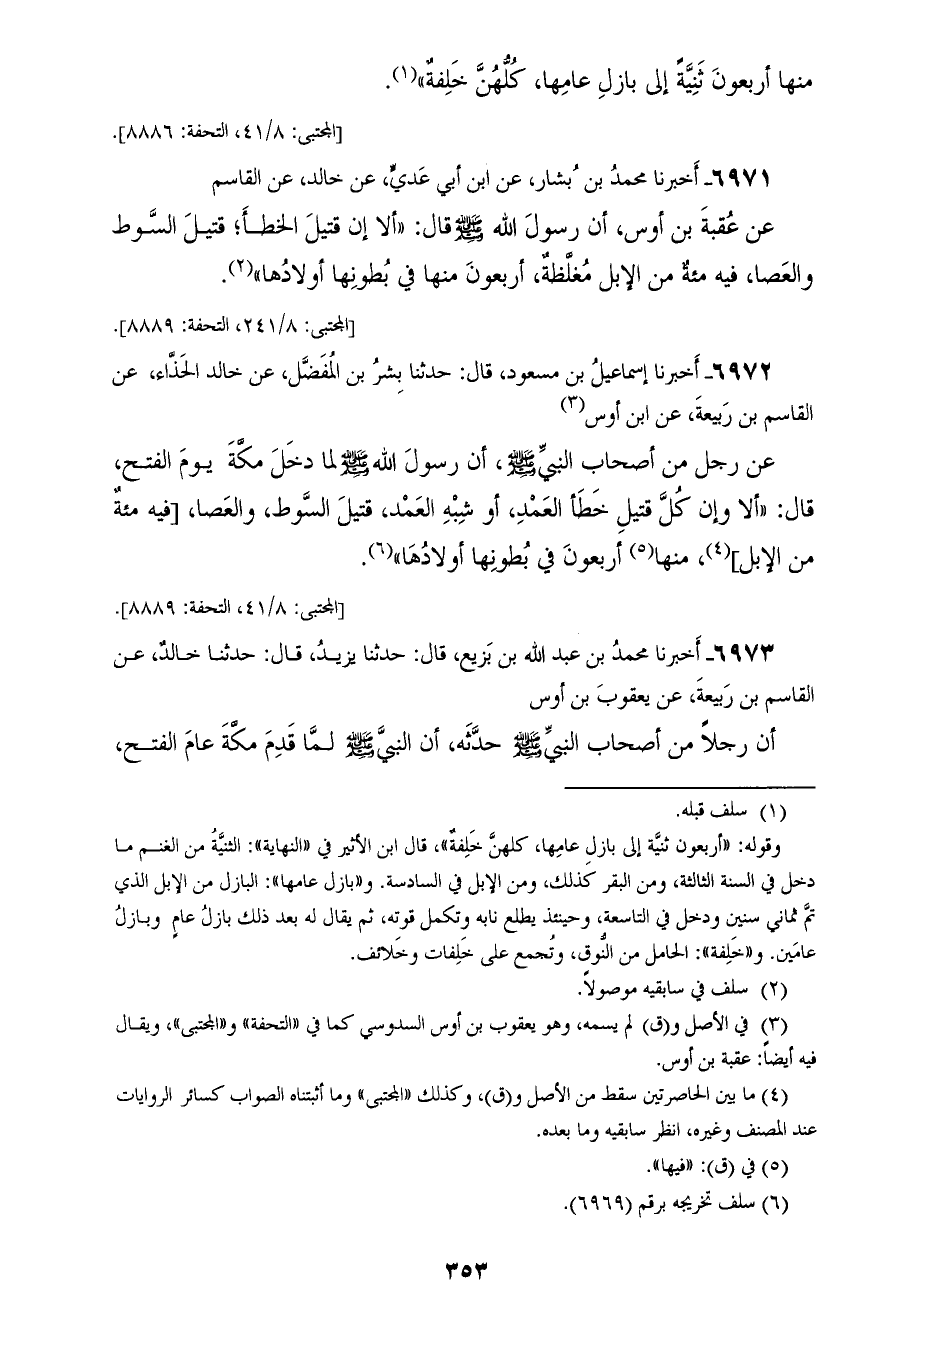 منها أربعونَ ثَنِيَّةً إلى بازلِ عامِها، كُلُّهُنَّ خَلِفةٌ»(١).
[المجتبى: ٤١/٨، التحفة: ٨٨٨٦].
٦٩٧١ـ أَخبرنا محمدُ بن بُشار، عن ابن أبي عَديٍّ، عن خالد، عن القاسم
عن عُقبةَ بن أوس، أن رسولَ الله ﷺ قال: «ألا إن قتيلَ الخطـأ؛ قتيـلَ السَّـوط
والعَصا، فيه مئةٌ من الإبل مُغلَّظةٌ، أربعونَ منها في بُطونِها أولادُها»(٢).
[المجتبى: ٢٤١/٨، التحفة: ٨٨٨٩].
٦٩٧٢ـ أَخبرنا إسماعيلُ بن مسعود، قال: حدثنا بِشرُ بن المُفَضَّل، عن خالد الحَذَّاء، عن
القاسم بن رَبيعةَ، عن ابن أوس(٣)
عن رجل من أصحاب النبيِّ ﷺ، أن رسولَ الله ﷺ لما دخَلَ مكَّةَ يـومَ الفتـح،
قال: «ألا وإن كُلَّ قتيلِ خَطَأ العَمْدِ، أو شِبْهِ العَمْد، قتيلَ السوط، والعَصا، [فيه مئةٌ
من الإبل](٤)، منها(٥) أربعونَ في بُطونِها أولادُهَا»(٦).
[المجتبى: ٤١/٨، التحفة: ٨٨٨٩].
٦٩٧٣ـ أَخبرنا محمدُ بن عبد الله بن بَزيع، قال: حدثنا يزيـدُ، قـال: حدثنـا خـالدٌ، عـن
القاسم بن رَبيعةَ، عن يعقوبَ بن أوس
أن رجلاً من أصحاب النبيِّ ﷺ حدَّثَه، أن النبيَّ ﷺ لـمَّا قَدِمَ مكَّةَ عامَ الفتـح،
(١) سلف قبله.
وقوله: «أربعون ثنيَّة إلى بازلِ عامِها، كلهنَّ خَلِفةٌ»، قال ابن الأثير في «النهاية»: الثنيَّةُ من الغنـم مـا
دخل في السنة الثالثة، ومن البقر كذلك، ومن الإبل في السادسة. و«بازل عامها»: البازل من الإبل الذي
تمَّ ثماني سنين ودخل في التاسعة، وحينئذ يطلع نابه وتكمل قوته، ثم يقال له بعد ذلك بازلُ عامٍ وبـازلُ
عامَين. و«خَلِفة»: الحامل من النُّوق، وتُجمع على خَلِفات وخَلائف.
(٢) سلف في سابقيه موصولاً.
(٣) في الأصل و(ق) لم يسمه، وهو يعقوب بن أوس السدوسي كما في «التحفة» و«المجتبى»، ويقـال
فيه أيضاً: عقبة بن أوس.
(٤) ما بين الحاصرتين سقط من الأصل و(ق)، وكذلك «المجتبى» وما أثبتناه الصواب كسائر الروايات
عند المصنف وغيره، انظر سابقيه وما بعده.
(٥) في (ق): «فيها».
(٦) سلف تخريجه برقم (٦٩٦٩).
٣٥٣